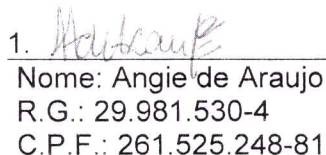 1.
Nome: Angie de Araujo
R.G.: 29.981.530-4
C.P.F.: 261.525.248-81